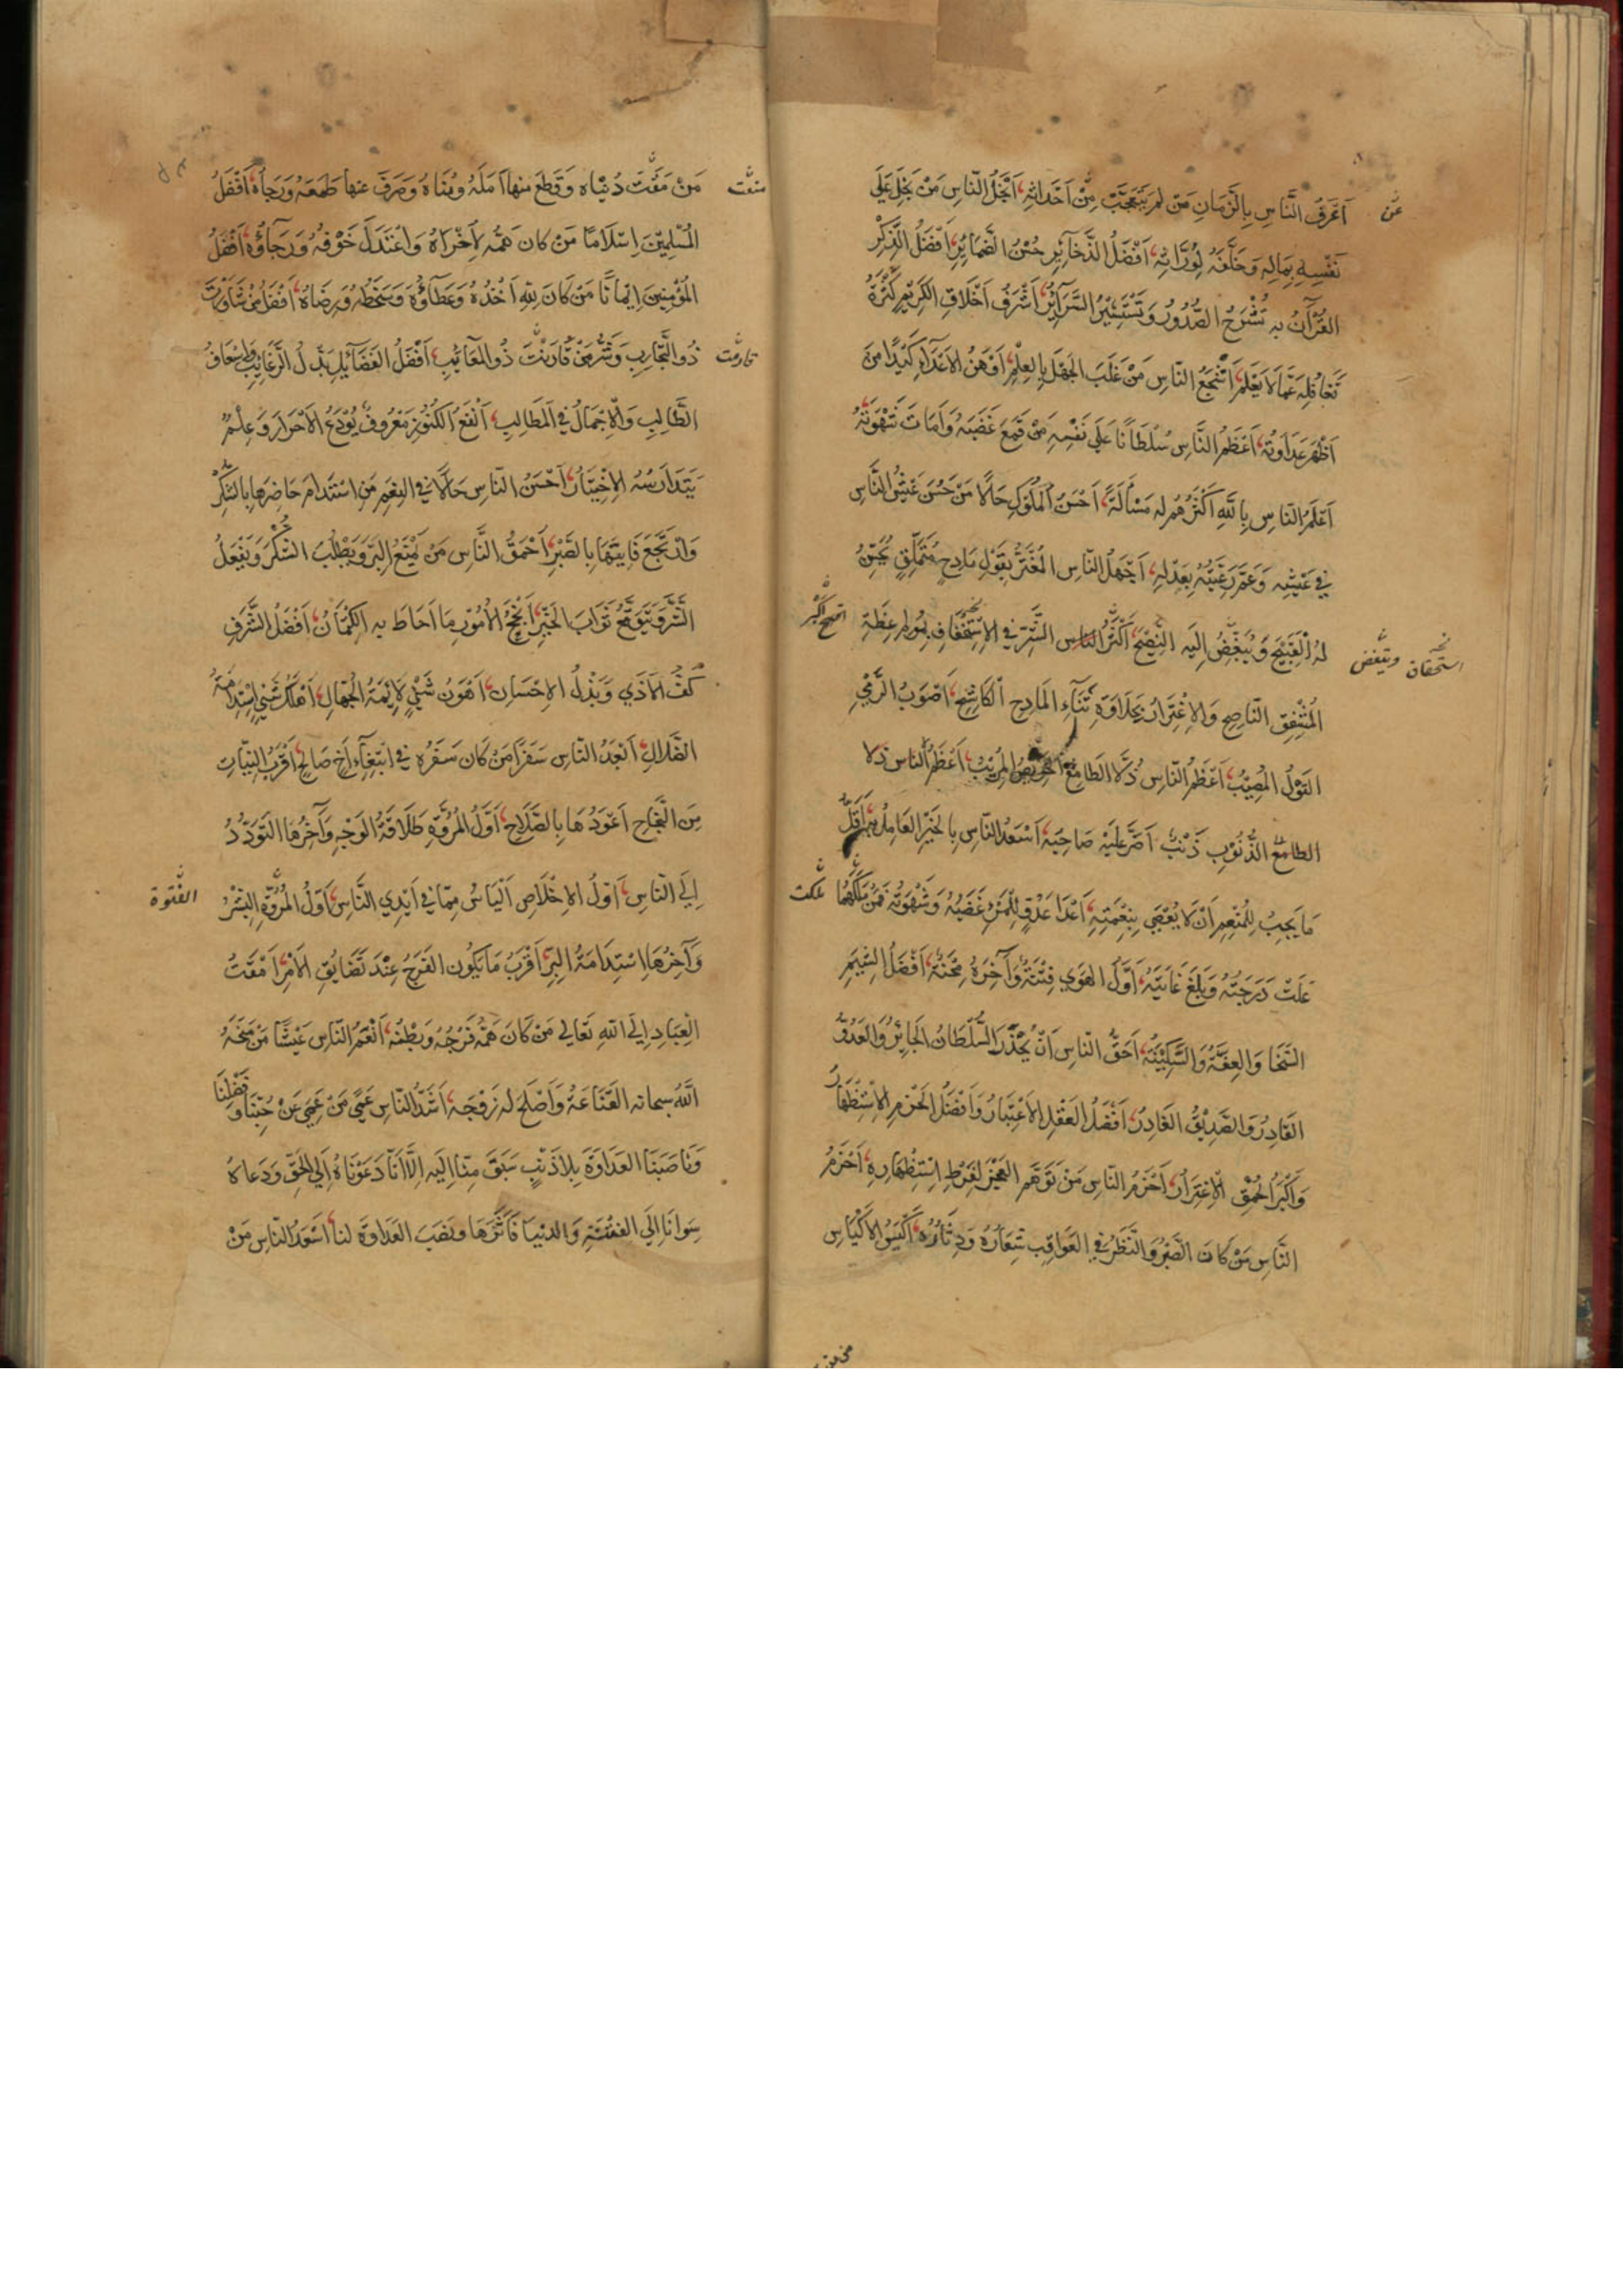 اَعْرَفُ النَّاسِ بِالزَّمَانِ مَنْ لَمْ يَتَعَجَّبْ مِنْ اَحْدَاثِهِ، اَبْخَلُ النَّاسِ مَنْ بَخِلَ عَلَى
عن
نَفْسِهِ بِمَالِهِ وَخَلَّفَهُ لِوُرَّاثِهِ، اَفْضَلُ الذَّخَآئِرِ حُسْنُ الضَّمَائِرِ، اَفْضَلُ الذِّكْرِ
القُرْآنُ بِهِ تُشْرَحُ الصُّدُورُ وَتَسْتَنِيْرُ السَّرَآئِرُ، اَشْرَفُ اَخْلَاقِ الكَرِيْمِ كَثْرَةُ
تَغَافُلِهِ عَمَّا لَا يَعْلَمُ، اَشْجَعُ النَّاسِ مَنْ غَلَبَ الجَهْلَ بِالعِلْمِ، اَوْهَنُ الاَعْدَآءِ كَيْدًا مَنْ
اَظْهَرَ عَدَاوَتَهُ، اَعْظَمُ النَّاسِ سُلْطَانًا عَلَى نَفْسِهِ مَنْ قَمَعَ غَضَبَهُ وَاَمَاتَ شَهْوَتَهُ
اَعْلَمُ النَّاسِ بِاللهِ اَكْثَرُهُمْ لَهُ مَسْأَلَةً، اَحْسَنُ المُلُوكِ حَالًا مَنْ حَسُنَ عَيْشُ النَّاسِ
فِي عَيْشِهِ وَعَمَّ رَعِيَّتَهُ بِعَدْلِهِ، اَجْهَلُ النَّاسِ المُغْتَرُّ بِقَوْلِ مَادِحٍ مُتَمَلِّقٍ يُحَسِّنُ
لَهُ القَبِيْحَ وَيُبَغِّضُ اِلَيْهِ النَّصِيْحَ، اَكْثَرُ النَّاسِ
استحقاق
ويبغض
المُشْفِقِ النَّاصِحِ وَالاِغْتِرَارُ بِحَلَاوَةِ ثَنَآءِ المَادِحِ الكَاشِحِ، اَصْوَبُ الرَّمْيِ
القَوْلُ المُصِيْبُ، اَعْظَمُ النَّاسِ ذُلًّا الطَّامِعُ الحَرِيصُ المُرِيْبُ، اَعْظَمُ النَّاسِ ذُلًّا
الطامع الذُّنُوْبِ ذَنْبٌ اَصَرَّ عَلَيْهِ صَاحِبُهُ، اَسْعَدُ النَّاسِ بِالخَيْرِ العَامِلُ بِهِ، اَقَلُّ
مَا يَجِبُ لِلْمُنْعِمِ اَنْ لَا يُعْصَى بِنِعْمَتِهِ، اَعْدَا عَدُوٍّ لِلْمَرْءِ غَضَبُهُ وَشَهْوَتُهُ فَمَنْ مَلَكَهُمَا
ملكت
عَلَتْ دَرَجَتُهُ وَبَلَغَ غَايَتَهُ، اَوَّلُ الهَوَى فِتْنَةٌ وَآخِرُهُ مِحْنَةٌ، اَفْضَلُ الشِّيَمِ
السَّخَا وَالعِفَّةُ وَالسَّكِيْنَةُ، اَحَقُّ النَّاسِ اَنْ يُحْذَرَ السُّلْطَانُ الجَائِرُ وَالعَدُوُّ
القَادِرُ وَالصَّدِيْقُ الغَادِرُ، اَفْضَلُ العَقْلِ الاِعْتِبَارُ وَاَفْضَلُ الحَزْمِ الاِسْتِظْهَارُ
وَاَكْبَرُ الحُمْقِ الاِغْتِرَارُ، اَحْزَمُ النَّاسِ مَنْ تَوَهَّمَ العَجْزَ لِفَرْطِ اسْتِظْهَارِهِ، اَحْزَمُ
النَّاسِ مَنْ كَانَ الصَّبْرُ وَالنَّظَرُ فِي العَوَاقِبِ شِعَارَهُ وَدِثَارَهُ، اَكْيَسُ الاَكْيَاسِ
مَنْ مَقَتَ دُنْيَاهُ وَقَطَعَ مِنْهَا اَمَلَهُ وَمُنَاهُ وَصَرَفَ عَنْهَا طَمَعَهُ وَرَجَاهُ، اَفْضَلُ
المُسْلِمِيْنَ اِسْلَامًا مَنْ كَانَ هَمُّهُ لِاُخْرَاهُ وَاعْتَدَلَ خَوْفُهُ وَرَجَاؤُهُ، اَفْضَلُ
المُؤْمِنِيْنَ اِيْمَانًا مَنْ كَانَ لِلّٰهِ اَخْذُهُ وَعَطَاؤُهُ وَسَخَطُهُ وَرِضَاهُ، اَفْضَلُ مَنْ شَاوَرْتَ
ذُو التَّجَارِبِ وَشَرُّ مَنْ قَارَنْتَ ذُو المَعَائِبِ، اَفْضَلُ الفَضَآئِلِ بَذْلُ الرَّغَائِبِ وَاِسْعَافُ
الطَّالِبِ وَالاِجْمَالُ فِي المَطَالِبِ، اَنْفَعُ الكُنُوْزِ مَعْرُوفٌ يُوْدَعُ الاَحْرَارَ وَعِلْمٌ
يَتَدَارَسُهُ الاَخْيَارُ، اَحْسَنُ النَّاسِ حَالًا فِي النِّعَمِ مَنِ اسْتَدَامَ حَاضِرَهَا بِالشُّكْرِ
وَارْتَجَعَ فَايِتَهَا بِالصَّبْرِ، اَحْمَقُ النَّاسِ مَنْ يَمْنَعُ البِرَّ وَيَطْلُبُ الشُّكْرَ وَيَفْعَلُ
الشَّرَّ وَيَتَوَقَّعُ ثَوَابَ الخَيْرِ، اَنْجَحُ الاُمُوْرِ مَا اَحَاطَ بِهِ الكِتْمَانُ، اَفْضَلُ الشَّرَفِ
كَفُّ الاَذَى وَبَذْلُ الاِحْسَانِ، اَهْوَنُ شَيْءٍ لَائِمَةُ الجُهَّالِ، اَهْلَكُ شَيْءٍ اسْتِدَامَةُ
الضَّلَالِ، اَبْعَدُ النَّاسِ سَفَرًا مَنْ كَانَ سَفَرُهُ فِي ابْتِغَآءِ اَخٍ صَالِحٍ، اَقْرَبُ النِّيَّاتِ
مِنَ النَّجَاحِ اَعْوَدُهَا بِالصَّلَاحِ، اَوَّلُ المُرُوَّةِ طَلَاقَةُ الوَجْهِ وَآخِرُهَا التَّوَدُّدُ
اِلَى النَّاسِ، اَوَّلُ الاِخْلَاصِ اليَاسُ مِمَّا فِي اَيْدِي النَّاسِ، اَوَّلُ المُرُوَّةِ البِشْرُ
الفتوة
وَآخِرُهَا اسْتِدَامَةُ البِرِّ، اَقْرَبُ مَا يَكُونُ الفَرَجُ عِنْدَ تَضَايُقِ الاَمْرِ، اَمْقَتُ
العِبَادِ اِلَى اللهِ تَعَالَى مَنْ كَانَ هَمُّهُ فَرْجُهُ وَبَطْنُهُ، اَنْعَمُ النَّاسِ عَيْشًا مَنْ مَنَحَهُ
اللّٰهُ سبحانه القَنَاعَةَ وَاَصْلَحَ لَهُ زَوْجَهُ، اَشَدُّ النَّاسِ عَمًى مَنْ عَمِيَ عَنْ حُبِّنَا وَفَضْلِنَا
وَنَاصَبَنَا العَدَاوَةَ بِلَا ذَنْبٍ سَبَقَ مِنَّا اِلَيْهِ اِلَّا اَنَّا دَعَوْنَاهُ اِلَى الحَقِّ وَدَعَاهُ
سِوَانَا اِلَى الفِتْنَةِ وَالدُّنْيَا فَآثَرَهَا وَنَصَبَ العَدَاوَةَ لَنَا، اَسْعَدُ النَّاسِ مَنْ